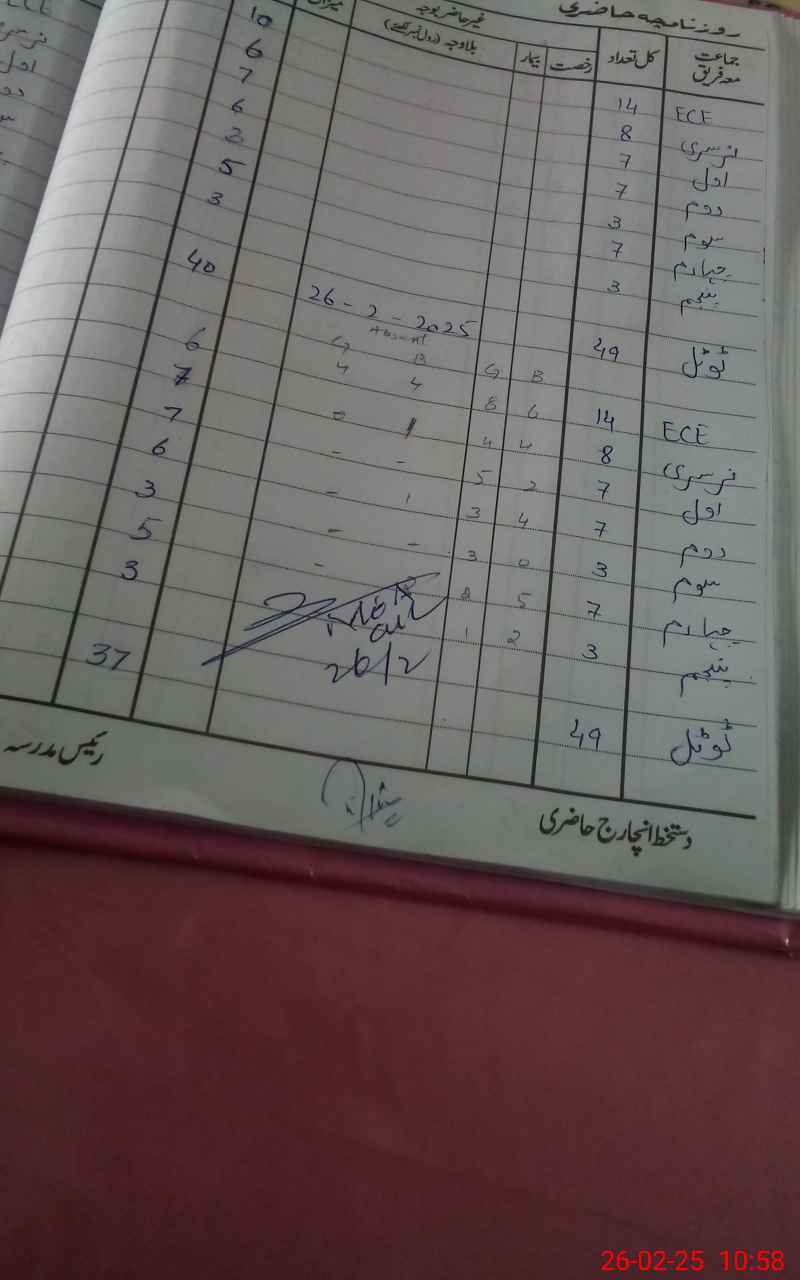 روزنامچہ حاضری
جماعت معہ فریق کل تعداد رخصت بیمار غیر حاضر بوجہ بلاوجہ میزان
ECE 14 10
نرسری 8 6
اول 7 7
دوم 7 6
سوم 3 3
چہارم 7 5
پنجم 3 3
ٹوٹل 49 40
26-2-2025
Absent
G B G B
ECE 14 6 8 4 4 6
نرسری 8 4 4 1 0 7
اول 7 2 5 - - 7
دوم 7 4 3 1 - 6
سوم 3 0 3 - - 3
چہارم 7 5 - 5
پنجم 3 2 1 3
26/2
ٹوٹل 49 37
دستخط انچارج حاضری
رئیس مدرسہ
ECE
نرسری
اول
دوم
26-02-25 10:58